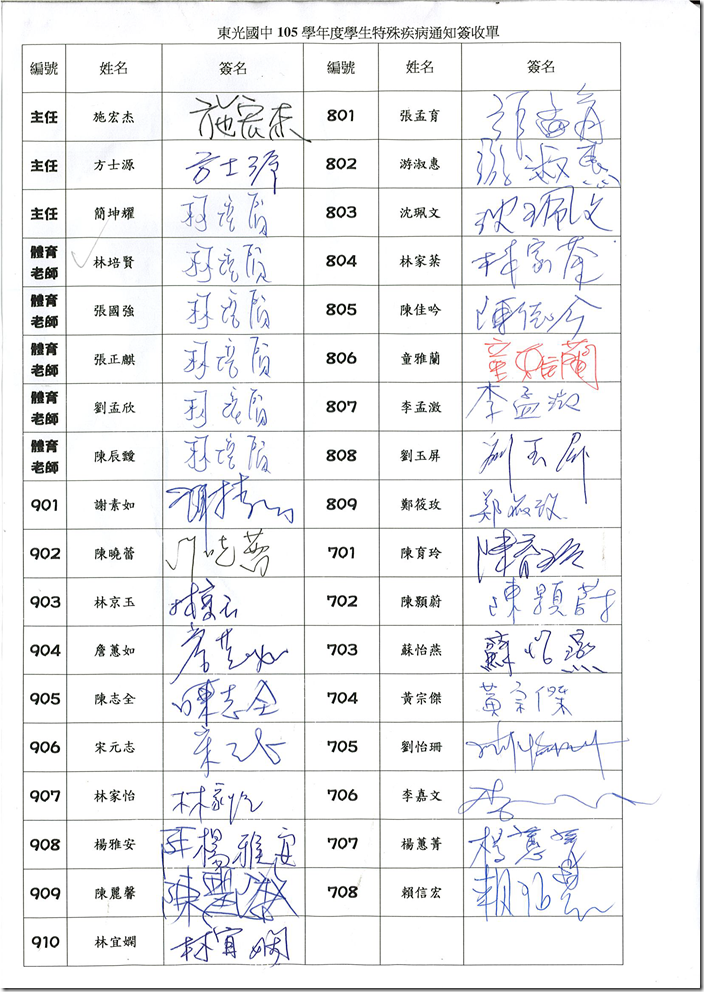 東光國中 105 學年度學生特殊疾病通知簽收單
編號 姓名 簽名 編號 姓名 簽名
主任 施宏杰 施宏杰 801 張孟育
主任 方士源 方士源 802 游淑惠 游淑惠
主任 簡坤耀 林培賢 803 沈珮文 沈珮文
體育老師 林培賢 林培賢 804 林家棻 林家棻
體育老師 張國強 林培賢 805 陳佳吟 陳佳吟
體育老師 張正麒 林培賢 806 童雅蘭 童雅蘭
體育老師 劉孟欣 林培賢 807 李孟澂 李孟澂
體育老師 陳辰謢 林培賢 808 劉玉屏 劉玉屏
901 謝素如 809 鄭筱玫 鄭筱玫
902 陳曉蕾 陳曉蕾 701 陳育玲 陳育玲
903 林京玉 林京玉 702 陳顥蔚 陳顥蔚
904 詹蕙如 詹蕙如 703 蘇怡燕 蘇怡燕
905 陳志全 陳志全 704 黃宗傑 黃宗傑
906 宋元志 宋元志 705 劉怡珊 劉怡珊
907 林家怡 林家怡 706 李嘉文 李
908 楊雅安 楊雅安 707 楊蕙菁 楊蕙菁
909 陳麗馨 陳麗馨 708 賴信宏
910 林宜嫻 林宜嫻